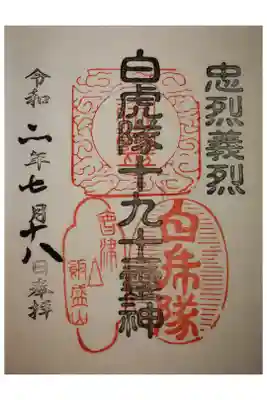 忠烈義烈
白虎隊十九士霊神
白虎隊
會津
飯盛山
令和二年七月十八日奉拝